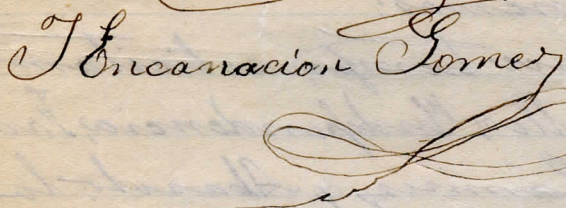 J Encanación Gomez